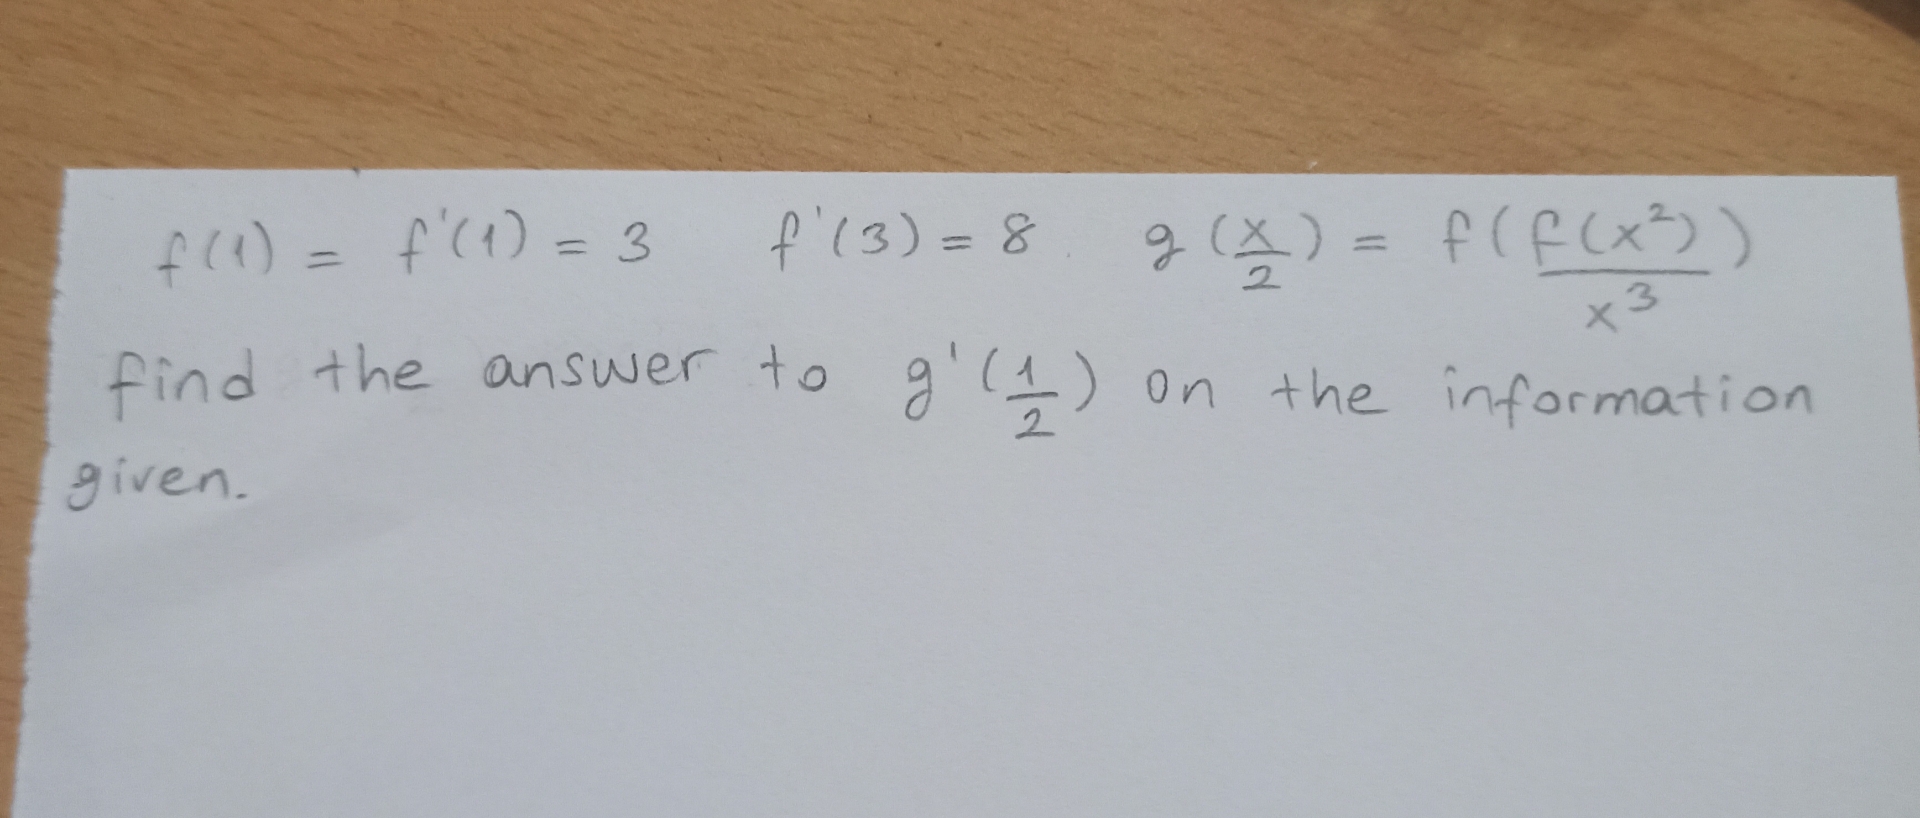 f(1) = f'(1) = 3 f'(3) = 8. g(x/2) = f(f(x²)/x³)
find the answer to g'(1/2) on the information
given.